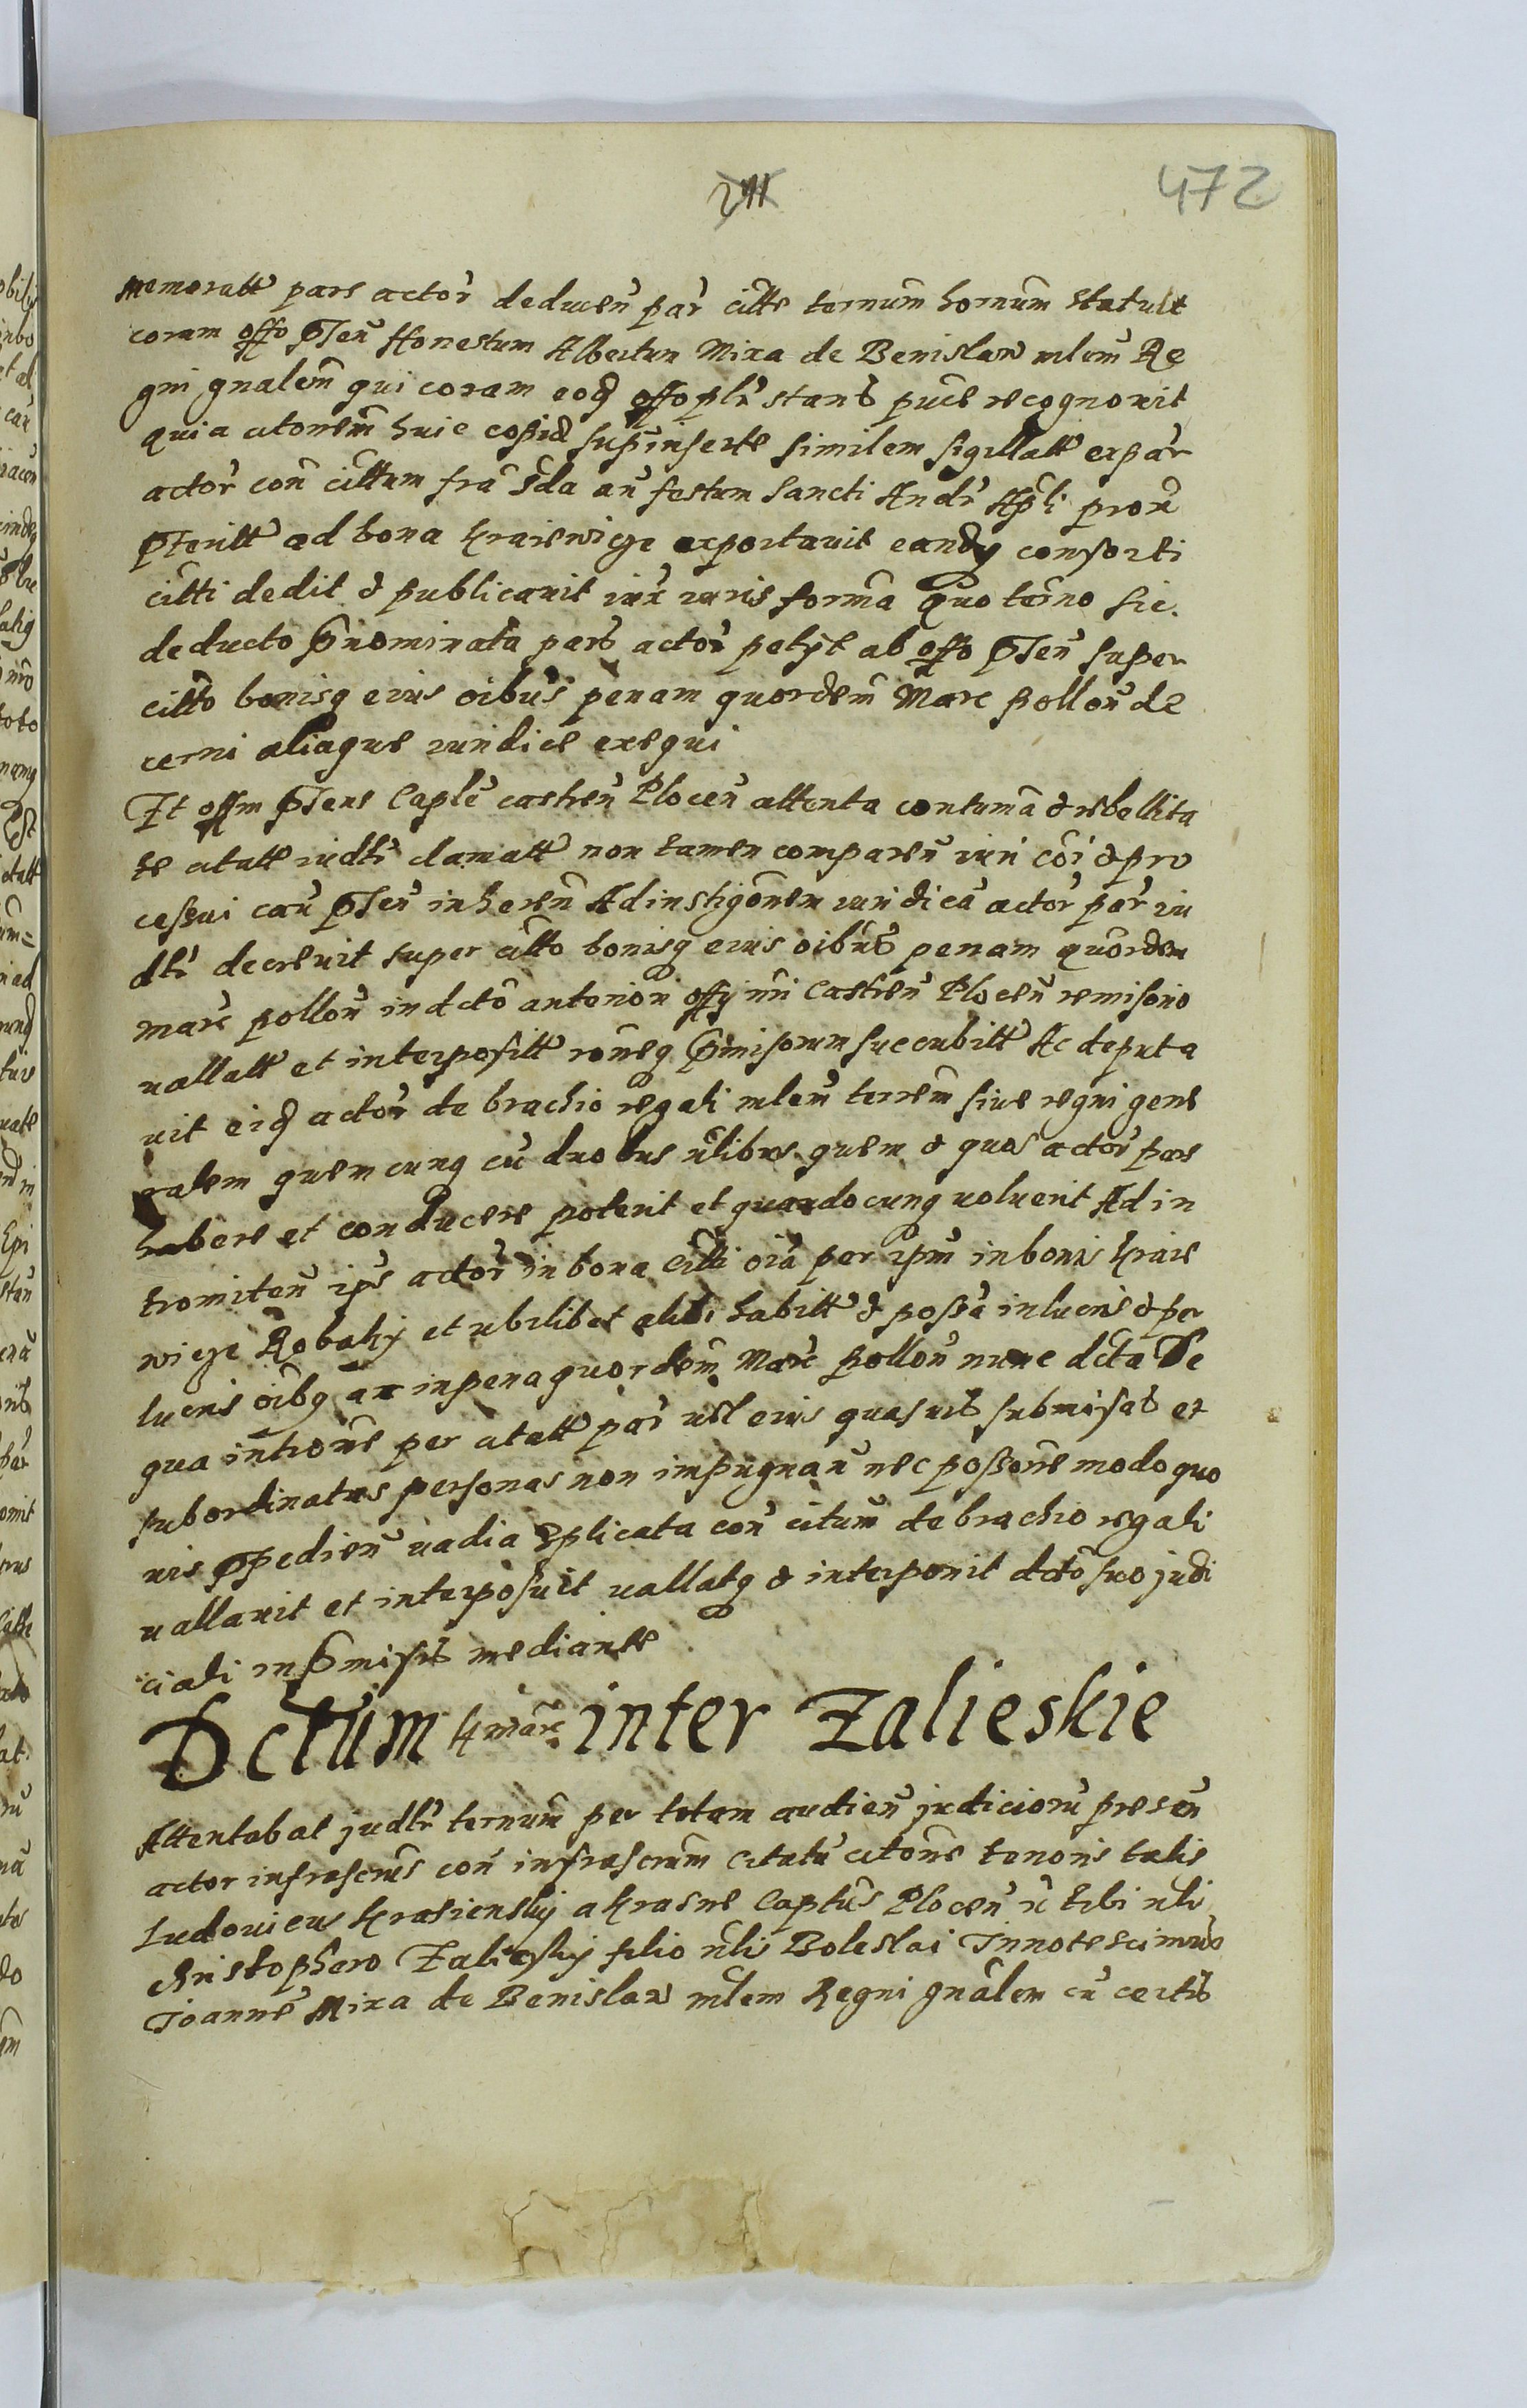 211
472
memoratt pars actor deducen par citte ternum hornum statuit
coram offo pnten Honestum Albertum Mixa de Benislaw mlem Re
gni gnalem qui coram eod offo plr stans puce recognovit
quia citonem huic copia supinserte similem sigillatt ex par
actor con cittum fra 2da an festum Sancti Andr Apli prox
pteritt ad bona Kraiewicze exportavit eandq consorti
citti dedit & publicavit iux iuris forma quo termo sic
deducto pnominata pars actor petyt ab offo pnten super
citto bonisq eius oibus penam quordem Marc pollon de
cerni aliaque iuridice exequi
Et offm pntens Caple castren Plocen attenta contuma & rebellita
te citatte iudlr clamatt non tamen comparen iuri coi & pro
cessui cau pnten inheren Ad instigonem iuridica actor par iu
dlr decrevit super citto bonisq eius oibus penam quordem
marc pollon in dcto anteriori offy nri Castren Plocen remissorio
vallatt et interpositt roneq pmissorum succubitt Ac deputa
vit eid actor de brachio regali mlem terrem sive regni gene
ralem quemcunq cu duobus nlibus quem & quos actor pars
habere et conducere poterit et quandocunq voluerit Ad in
tromiten ips actor in bona citti oia per ipm in bonis Kraie
wicze Robaky et ubilibet alibi habitt & possa in lucris & per
lucris oibq ac in pena quordem Marc pollon nunc dcta De
qua introne per citatt par vel eius quasvis submissas et
subordinatas personas non impugnan nec possone modo quo
vis ppedien vadia 2plicata con citum de brachio regali
vallavit et interposuit vallatq & interponit dcto suo judi
ciali in pmissis mediante
Dctum 4 marc inter Zalieskie
Attentabat judlr ternum per totam audien judicioru presen
actor infrascrus con infrascrum citatu citone tenoris talis
Ludovicus Krasiensky a Krasne Captus Plocen rc tibi nli
Christophero Zaliesky filio nlis Boleslai Innotescimus
Joanne Mixa de Benislaw mlem Regni gnalem cu certis